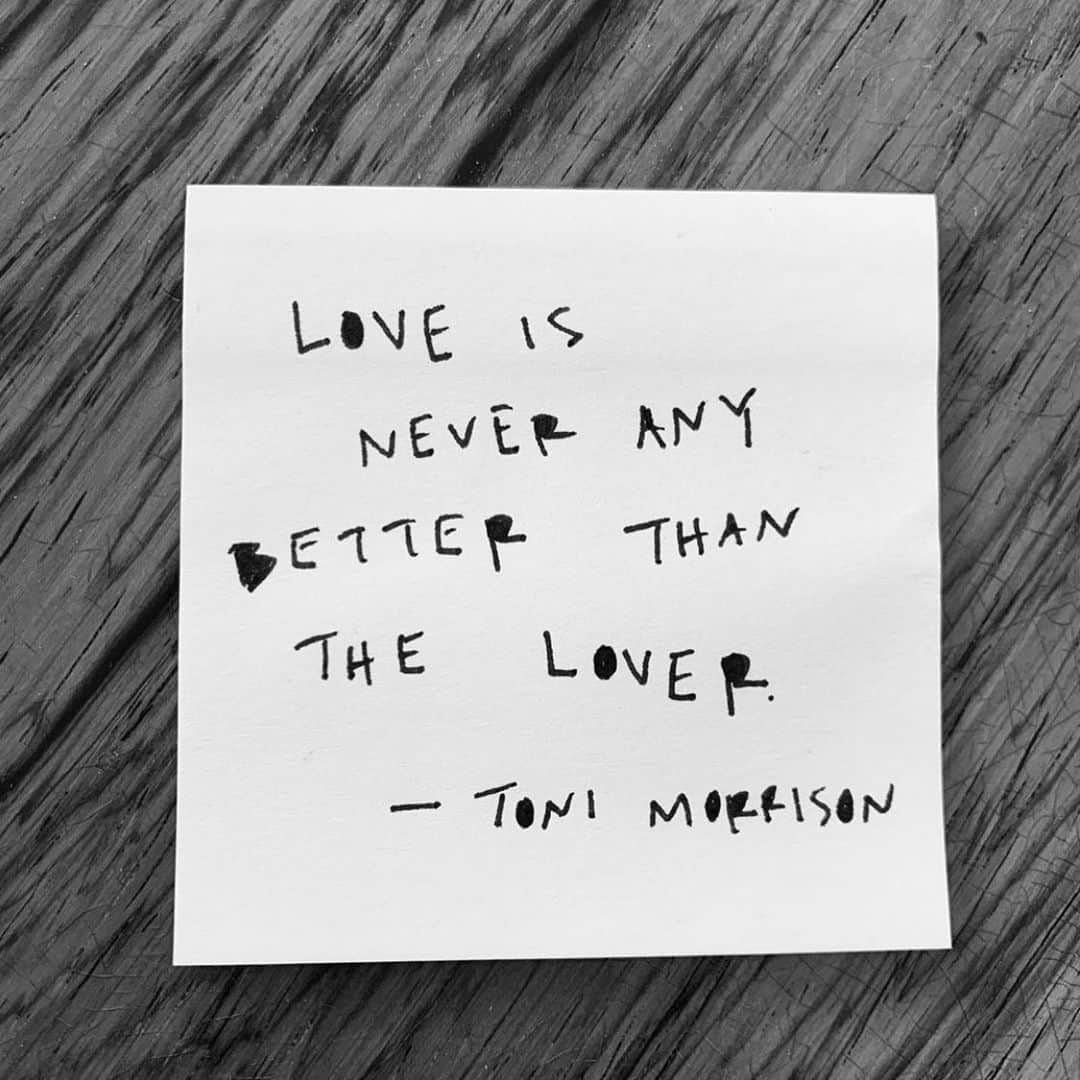 LOVE IS
NEVER ANY
BETTER THAN
THE LOVER.
— TONI MORRISON